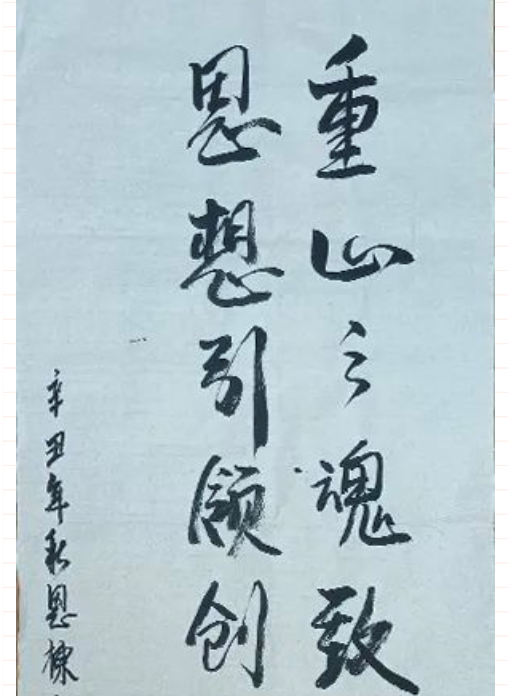 重山之魂致
思想引领创
辛丑年秋恩棟